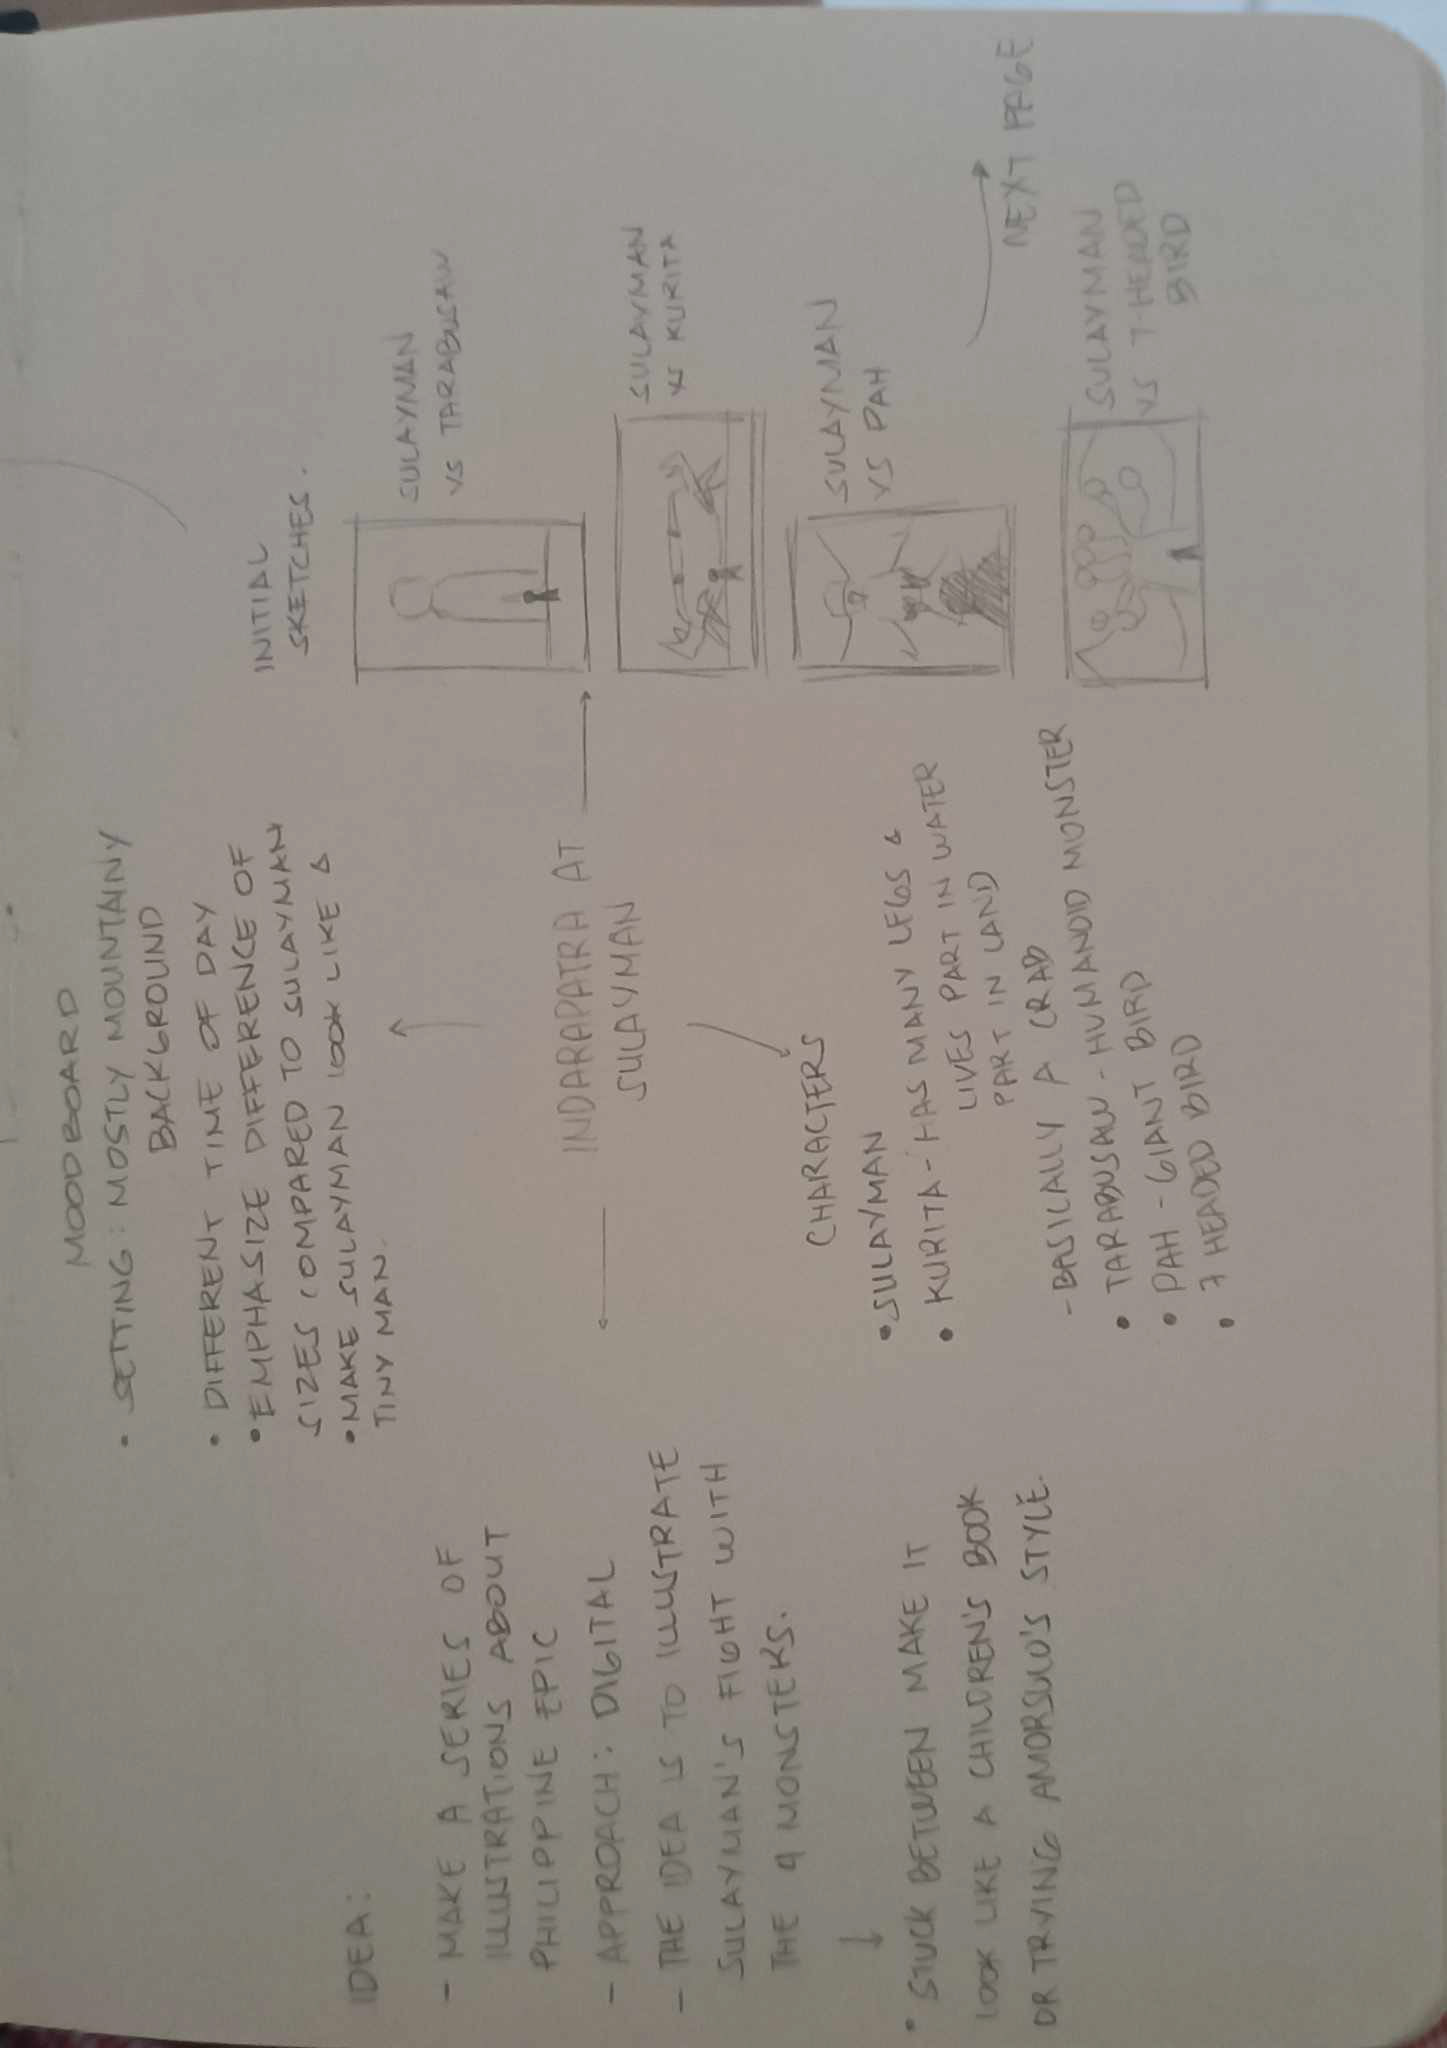 MOOD BOARD
• SETTING: MOSTLY MOUNTAINY
BACKGROUND
• DIFFERENT TIME OF DAY
• EMPHASIZE DIFFERENCE OF
SIZES COMPARED TO SULAYMAN
• MAKE SULAYMAN LOOK LIKE A
TINY MAN.
IDEA:
- MAKE A SERIES OF
ILLUSTRATIONS ABOUT
PHILIPPINE EPIC
- APPROACH: DIGITAL
- THE IDEA IS TO ILLUSTRATE
SULAYMAN'S FIGHT WITH
THE 4 MONSTERS.
• STUCK BETWEEN MAKE IT
LOOK LIKE A CHILDREN'S BOOK
OR TRYING AMORSOLO'S STYLE.
INDARAPATRA AT
SULAYMAN
CHARACTERS
• SULAYMAN
• KURITA - HAS MANY LEGS &
LIVES PART IN WATER
PART IN LAND
- BASICALLY A CRAB
• TARABUSAW - HUMANOID MONSTER
• PAH - GIANT BIRD
• 7 HEADED BIRD
INITIAL
SKETCHES.
SULAYMAN
VS TARABUSAW
SULAYMAN
VS KURITA
SULAYMAN
VS PAH
SULAYMAN
VS 7-HEADED
BIRD
NEXT PAGE